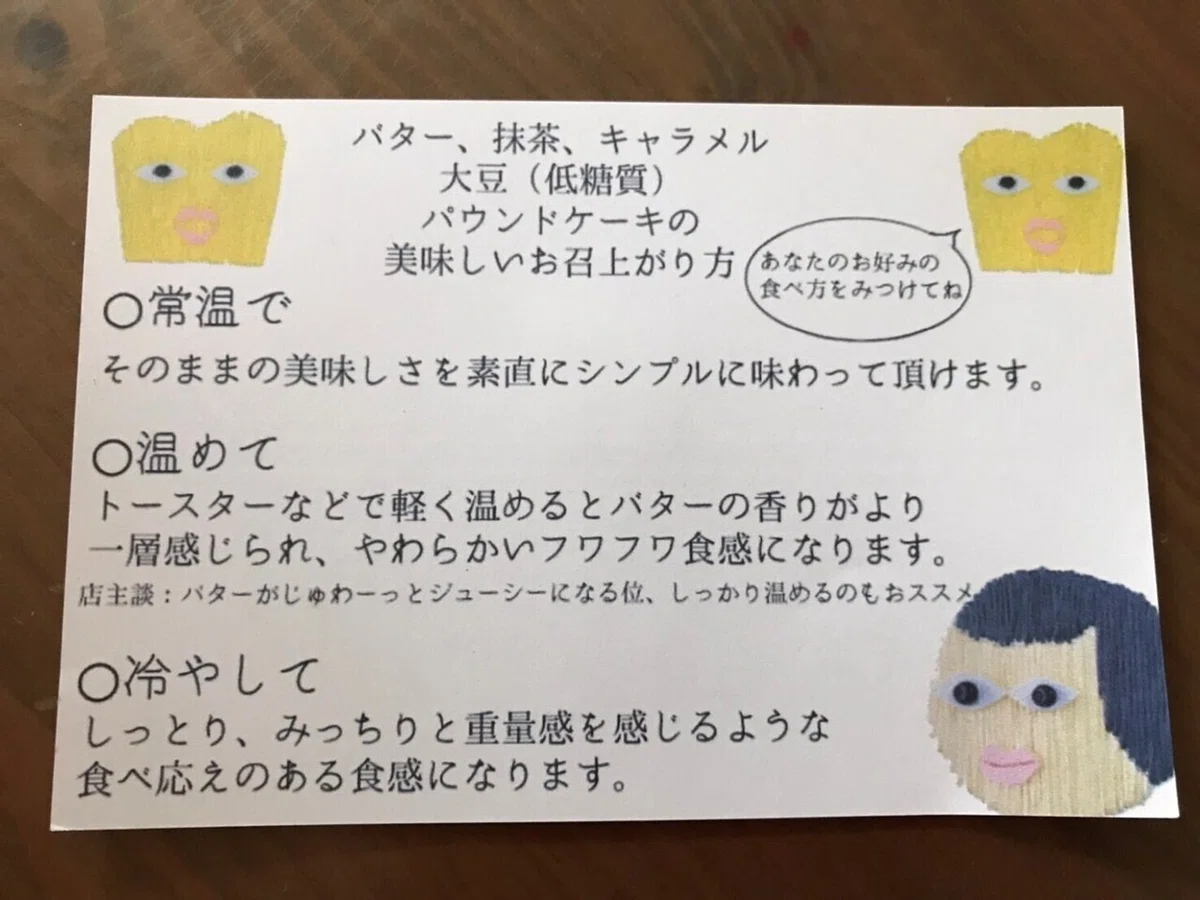 バター、抹茶、キャラメル
大豆（低糖質）
パウンドケーキの
美味しいお召上がり方
あなたのお好みの
食べ方をみつけてね
○常温で
そのままの美味しさを素直にシンプルに味わって頂けます。
○温めて
トースターなどで軽く温めるとバターの香りがより
一層感じられ、やわらかいフワフワ食感になります。
店主談：バターがじゅわーっとジューシーになる位、しっかり温めるのもおススメ
○冷やして
しっとり、みっちりと重量感を感じるような
食べ応えのある食感になります。